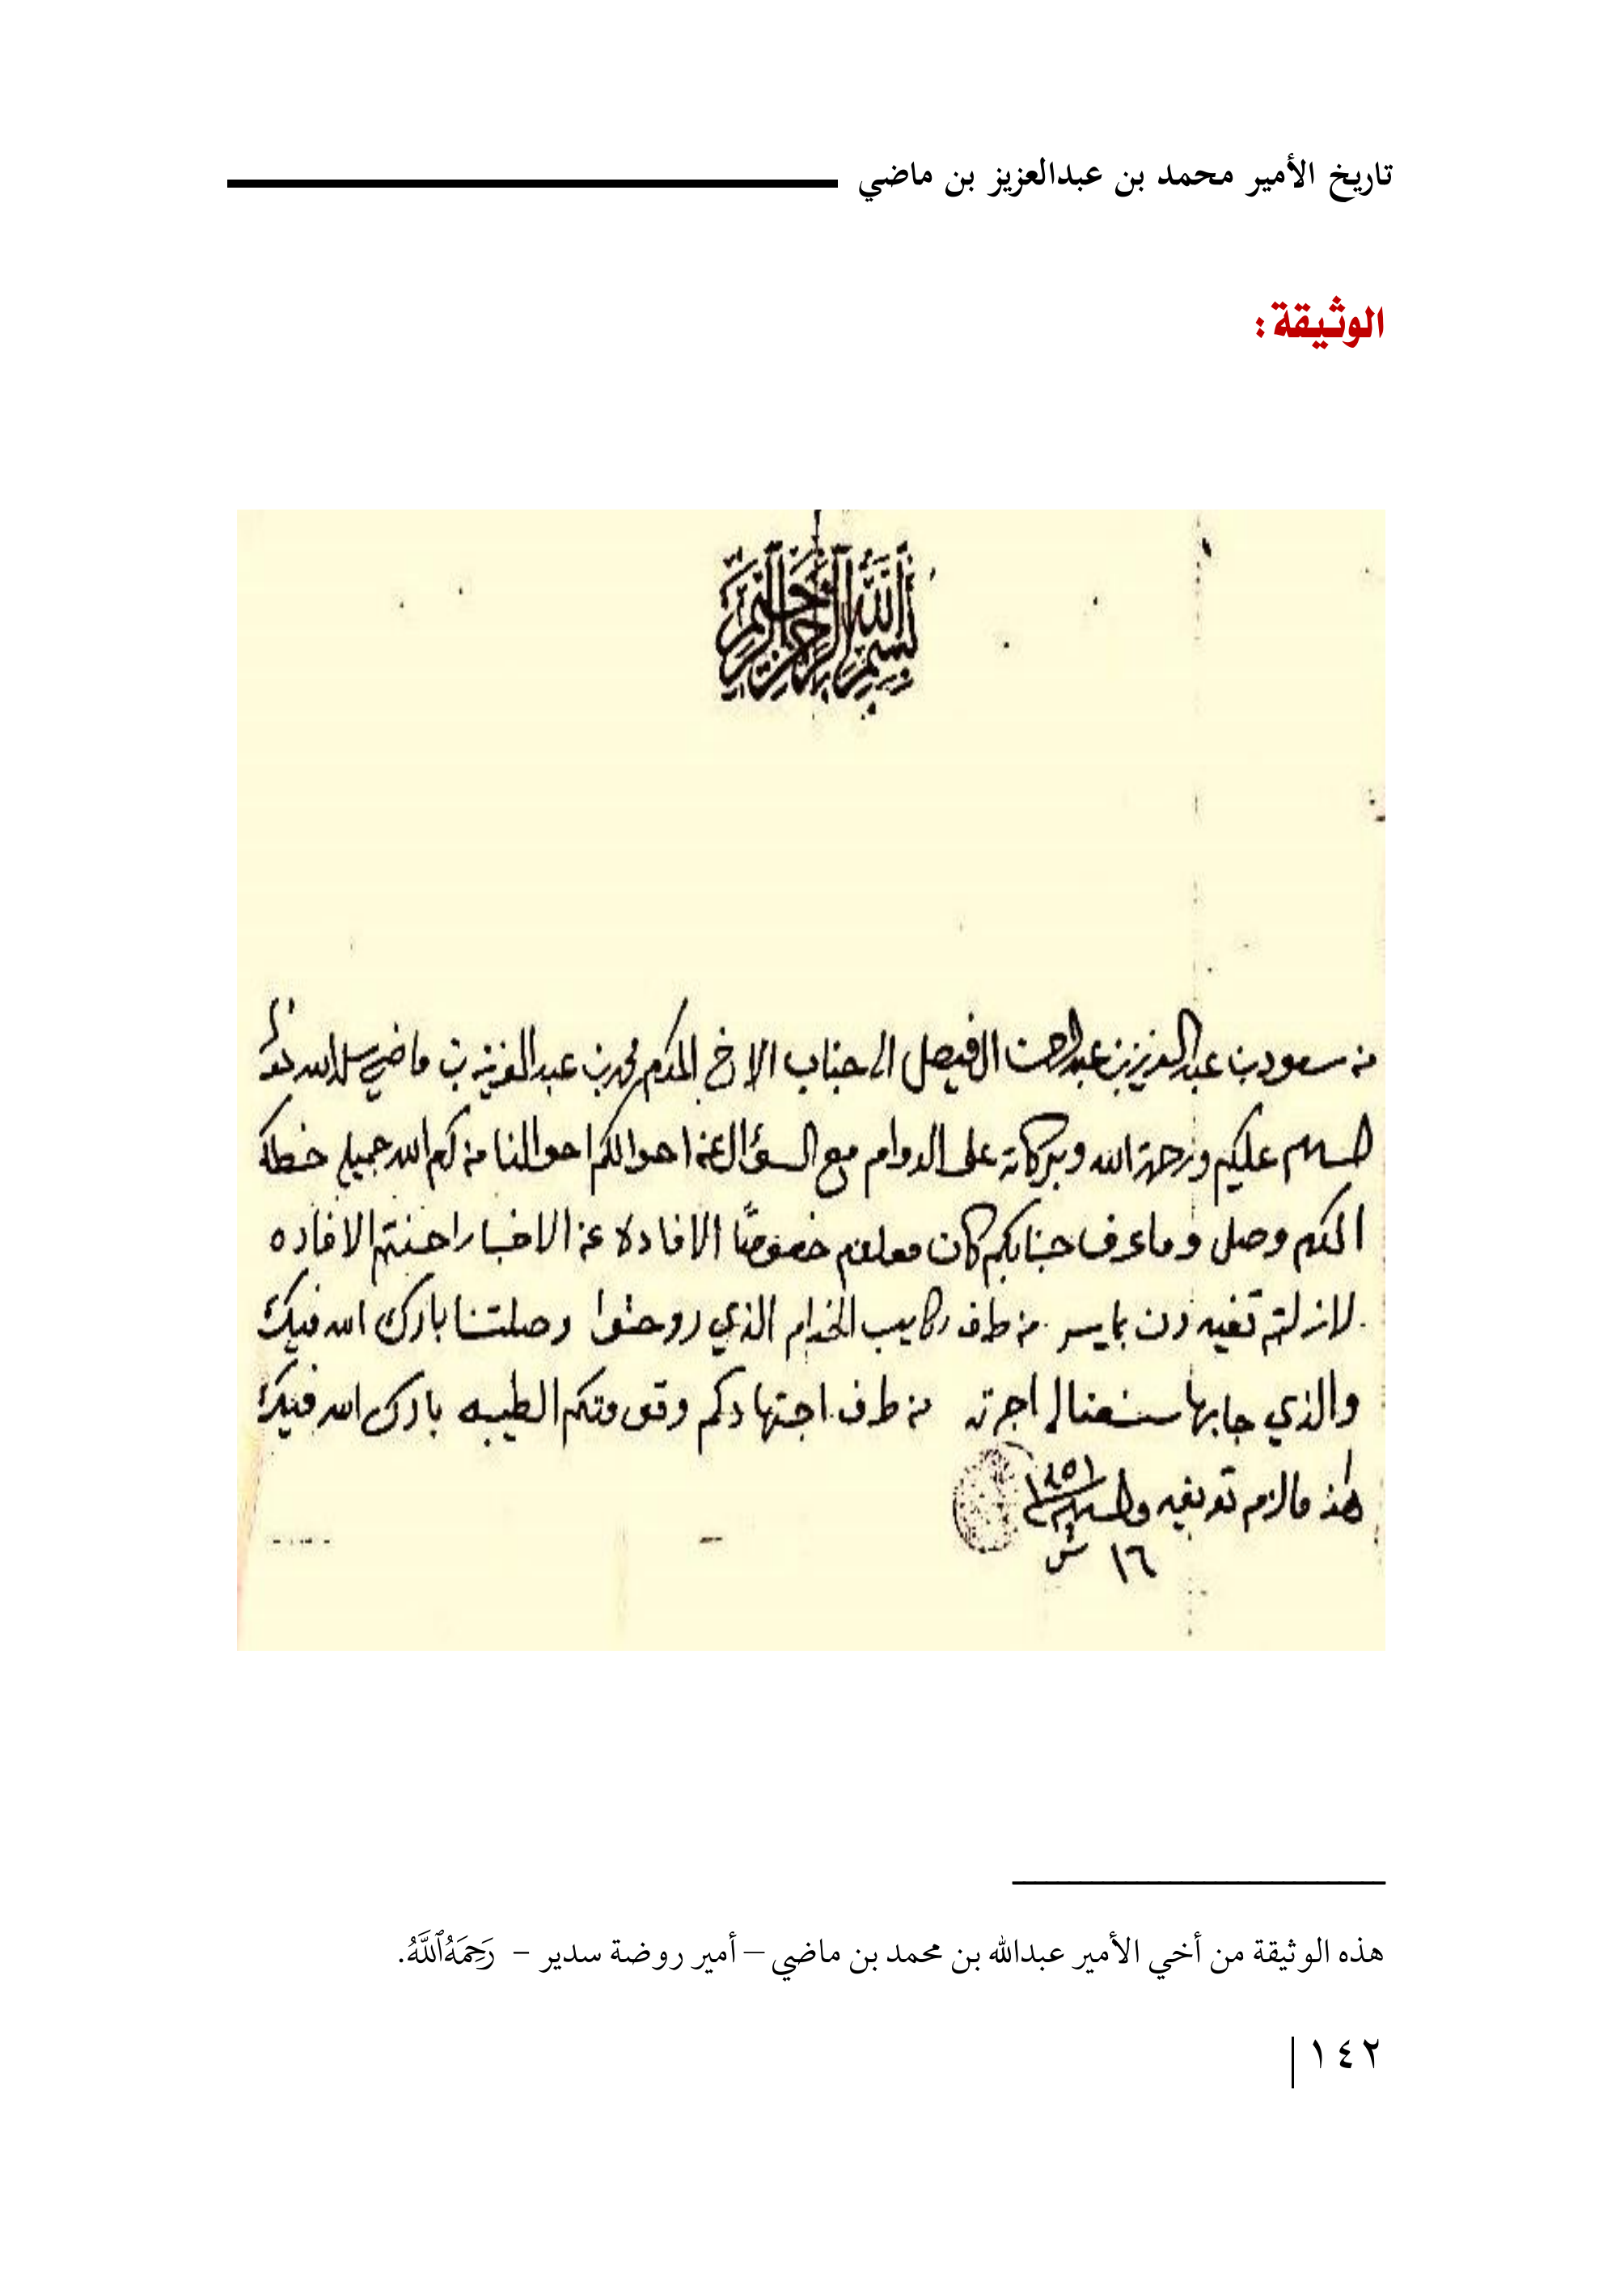 تاريخ الأمير محمد بن عبدالعزيز بن ماضي
الوثيقة :
بسم الله الرحمن الرحيم
من سعود بن عبدالعزيز بن عبدالرحمن الفيصل الى جناب الاخ المكرم محمد بن عبدالعزيز بن ماضي سلمه الله
السلام عليكم ورحمة الله وبركاته على الدوام مع السؤال عن احوالكم احوالنا من كرم الله جميله خطكم
المكرم وصل وما عرف جنابكم كان معلوم خصوصًا الافادة عن الاخبار احسنتم الافاده
لازلتم تفيدون بما يسر من طرف ركايب الخدام الذي روحتوا وصلتنا بارك الله فيك
والذي جابها سنعنا له اجرته من طرف اجتهادكم وقومتكم الطيبه بارك الله فيك
هذا مالزم تعريفه والسلام ١٣٥١
١٦ ش
هذه الوثيقة من أخي الأمير عبدالله بن محمد بن ماضي – أمير روضة سدير – رَحِمَهُ ٱللَّهُ.
١٤٢